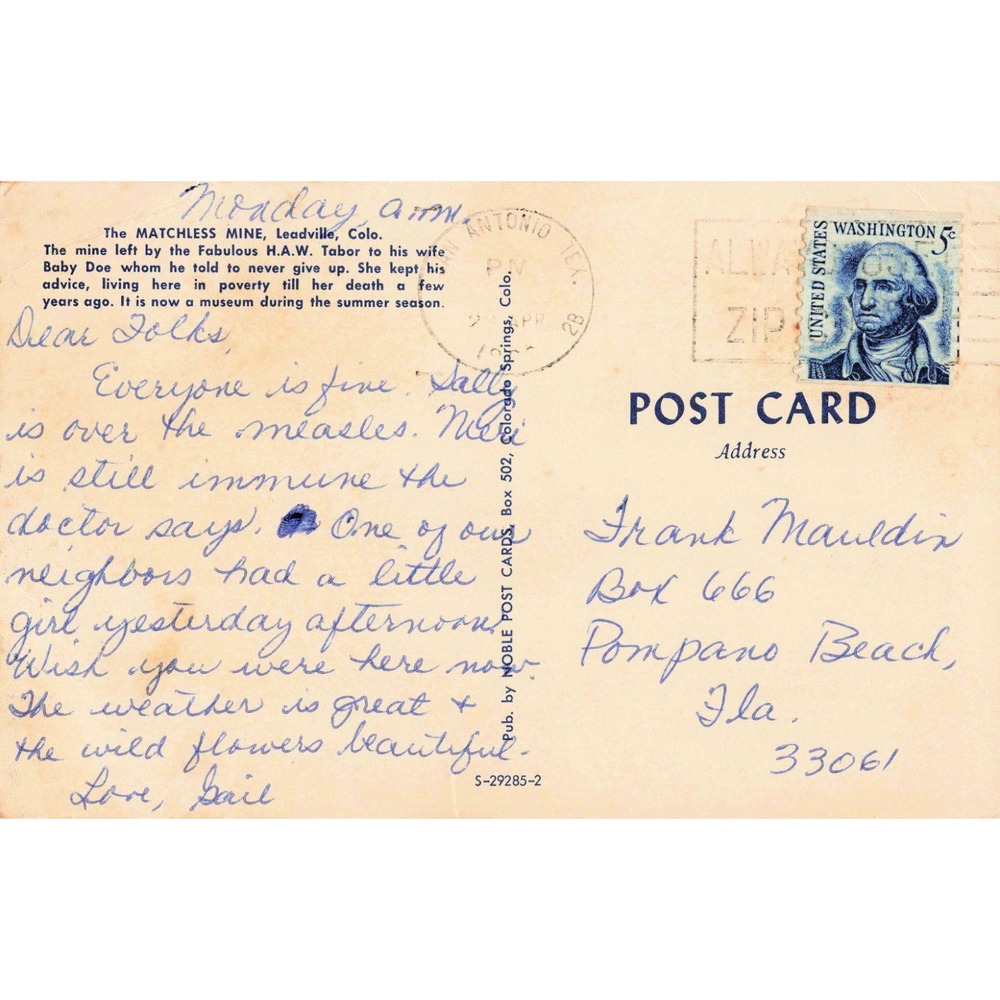 Monday, a.m.
The MATCHLESS MINE, Leadville, Colo.
The mine left by the Fabulous H.A.W. Tabor to his wife
Baby Doe whom he told to never give up. She kept his
advice, living here in poverty till her death a few
years ago. It is now a museum during the summer season.
Dear Folks,
Everyone is fine. Sally
is over the measles.
is still immune the
doctor says. One of our
neighbors had a little
girl yesterday afternoon.
Wish you were here now.
The weather is great +
the wild flowers beautiful.
Love, Gail
Pub. by NOBLE POST CARDS, Box 502, Colorado Springs, Colo.
S-29285-2
ANTONIO TEX.
PM
APR
28
ZIP
UNITED STATES
WASHINGTON 5c
POST CARD
Address
Frank Mauldin
Box 666
Pompano Beach,
Fla.
33061